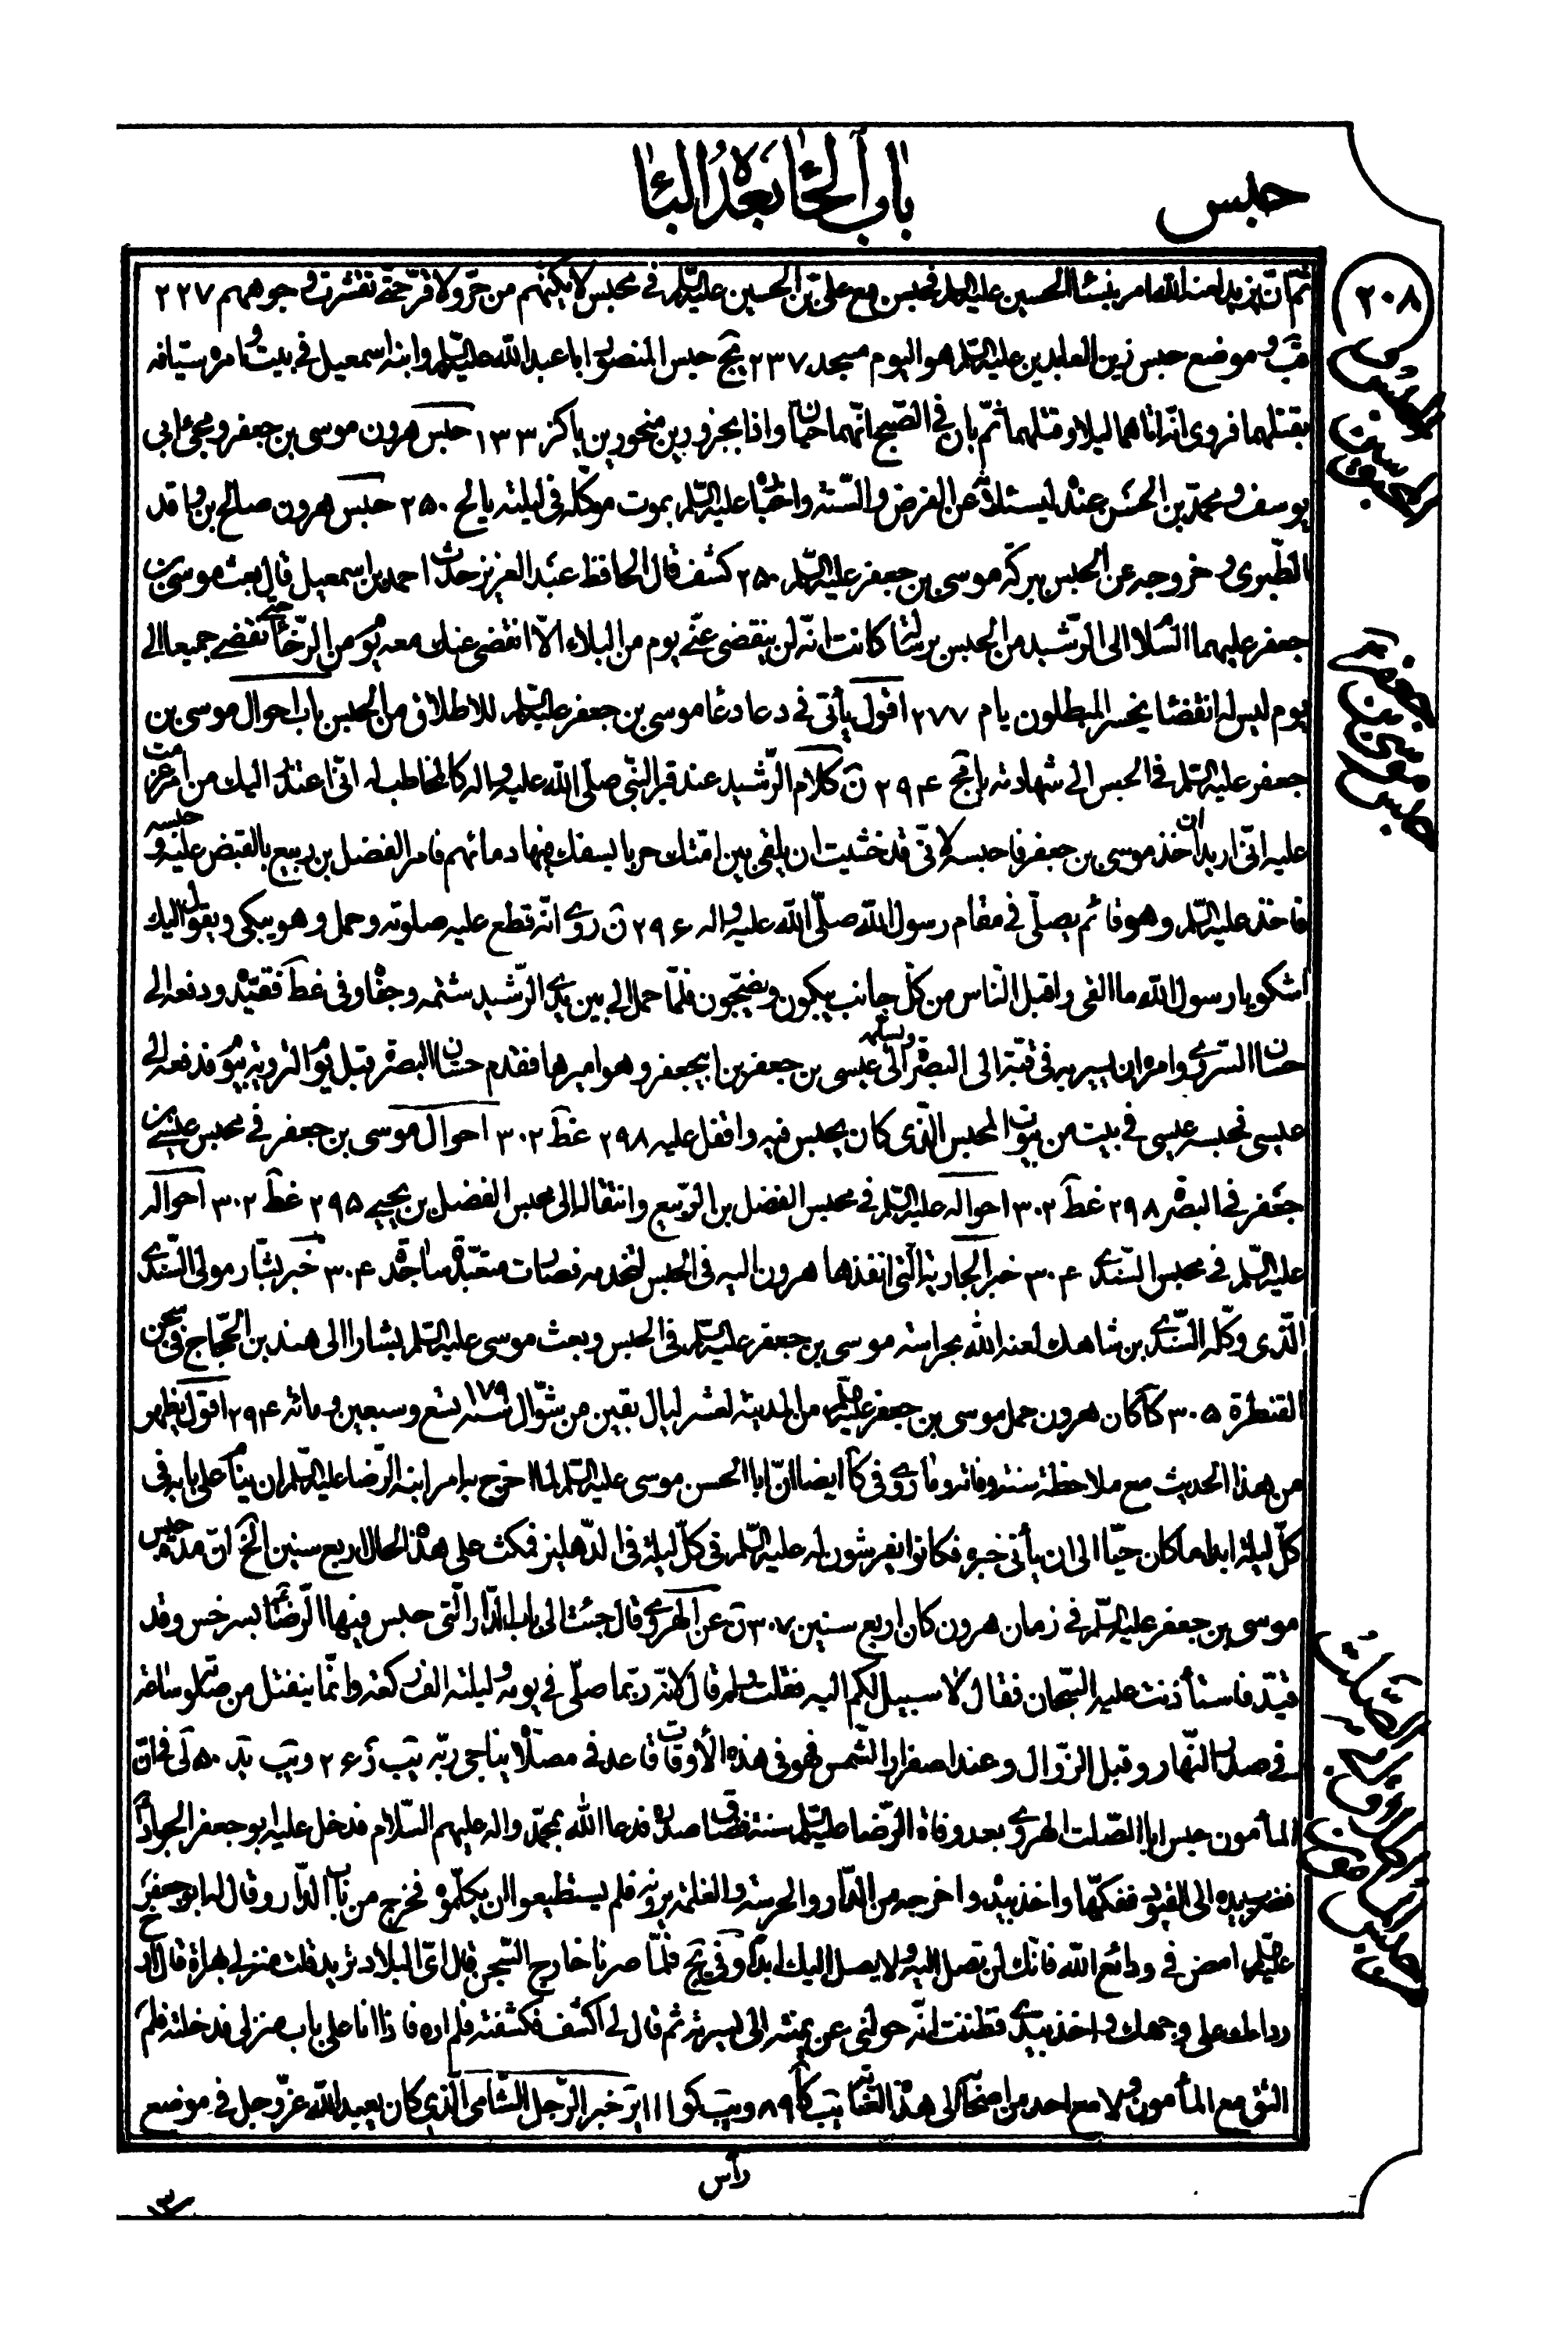 حبس
باب الحاء بعده الباء
٢٠٨
ثم ان يزيد لعنه الله امر بنساء الحسين عليه السلم فحبسن مع علي بن الحسين عليه السلم في محبس لا يكنهم من حر ولا قر حتى تقشرت وجوههم ٢٢٧
قب وموضع حبس زين العابدين عليه السلم هو اليوم مسجد ٢٣٧ يج حبس المنصور ابا عبد الله عليه السلم وابنه اسمعيل في بيت وامره سيافه
بقتلهما فروى انه اتاهما ليلا وقتلهما ثم بان في الصبح انهما حيان واذا بجزورين منحورين يا كز ١٣٣ حبس هرون موسى بن جعفر ومجئ ابي
يوسف ومحمد بن الحسن عنده ليسئلاه عن الفرض والسنة واخباره عليه السلم بموت موكله في ليلته يا لح ٢٥٠ حبس هرون صالح بن واقد
الطبرى وخروجه عن الحبس ببركة موسى بن جعفر عليه السلم ٢٥٠ كشف قال الحافظ عبد العزيز حدث احمد بن اسمعيل قال بعث موسى بن
جعفر عليهما السلام الى الرشيد من الحبس برسالة كانت انه لن ينقضى عني يوم من البلاء الا انقضى عنك معه يوم من الرخاء حتى نقضى جميعا الى
يوم ليس له انقضاء يخسر المبطلون يا م ٢٧٧ اقول يأتى في دعا دعاء موسى بن جعفر عليه السلم للاطلاق من الحبس باب احوال موسى بن
جعفر عليه السلم في الحبس الى شهادته يا مج ٢٩٤ ن كلام الرشيد عند قبر النبي صلى الله عليه واله كالمخاطب له اني اعتذر اليك من امر عزمت
عليه اني اريد ان اخذ موسى بن جعفر فاحبسه لاني قد خشيت ان يلقى بين امتك حربا يسفك فيها دمائهم فامر الفضل بن ربيع بالقبض عليه وحبسه
فاخذ عليه السلم وهو قائم يصلى في مقام رسول الله صلى الله عليه واله ٢٩٦ ن روى انه قطع عليه صلوته وحمل وهو يبكى ويقول اليك
اشكو يا رسول الله ما القى واقبل الناس من كل جانب يبكون ويضجون فلما حمل الى بين يدى الرشيد شتمه وجفاه وفى غط فقيده ودفعه الى
حسان السروى وامره ان يسير به في قبة الى البصرة ويسلمه الى عيسى بن جعفر بن ابيجعفر وهو اميرها فقدم حسان البصرة قبل يوم التروية بيوم فدفعه الى
عيسى فحبسه عيسى في بيت من بيوت المحبس الذى كان يحبس فيه واقفل عليه ٢٩٨ غط ٣٠٢ احوال موسى بن جعفر في محبس عيسى بن
جعفر في البصرة ٢٩٨ غط ٣٠٢ احواله عليه السلم في محبس الفضل بن الربيع وانتقاله الى محبس الفضل بن يحيى ٢٩٥ غط ٣٠٢ احواله
عليه السلم في محبس السندى ٣٠٤ خبر الجارية التى انفذها هرون اليه في الحبس لتخدمه فصارت متعبدة ساجدة ٣٠٤ خبر بشار مولى السندى
الذى وكله السندى بن شاهك لعنه الله بحراسة موسى بن جعفر عليه السلم في الحبس وبعث موسى عليه السلم بشارا الى هند بن الحجاج في سجن
القنطرة ٣٠٥ كا كان هرون حمل موسى بن جعفر عليه السلم من المدينة لعشر ليال بقين من شوال سنة ١٧٩ تسع وسبعين ومائة ٢٩٤ اقول يظهر
من هذا الحديث مع ملاحظة سنة وفاته وما روى في كا ايضا ان ابا الحسن موسى عليه السلم لما اخرج به امر ابنه الرضا عليه السلم ان ينام على بابه في
كل ليلة ابدا ما كان حيا الى ان يأتى خبره فكانوا يفرشون له عليه السلم في كل ليلة في الدهليز فمكث على هذا الحال اربع سنين الخ ان مدة حبس
موسى بن جعفر عليه السلم في زمان هرون كان اربع سنين ٣٠٧ ن عن الهروى قال جئت الى باب الدار التى حبس فيها الرضا بسرخس وقد
قيد فاستأذنت عليه السجان فقال لا سبيل لكم اليه فقلت ولم قال لانه ربما صلى في يومه وليلته الف ركعة وانما ينفتل من صلوته ساعة
في صدر النهار وقبل الزوال وعند اصفرار الشمس فهو في هذه الأوقات قاعد في مصلاه يناجى ربه يب ز ٢٦ ويب يد ٥٠ لى في ان
المأمون حبس ابا الصلت الهروى بعد وفاة الرضا عليه السلم سنة فضاق صدره فدعا الله بمحمد واله عليهم السلام فدخل عليه ابو جعفر الجواد
فضرب يده الى القيود ففكها واخذ بيده واخرجه من الدار والحرسة والغلمة يرونه فلم يستطيعوا ان يكلموه فخرج من باب الدار وقال له ابو جعفر
عليه السلم امض في ودائع الله فانك لن تصل اليه ولا يصل اليك ابدا وفى يج فلما صرنا خارج السجن قال اى البلاد تريد قلت منزلى بهراة قال ارخ
رداءك على وجهك واخذ بيدى فظننت انه حولنى عن يمنته الى يسرته ثم قال لى اكشف فكشفته فلم اره فاذا انا على باب منزلى فدخلته فلم
التق مع المأمون ولا مع احد من اصحابه الى هذه الغاية يب كا ٨٩ ويب كو ١١١ ير خبر الرجل الشامى الذى كان يعبد الله عز وجل في موضع
رأس